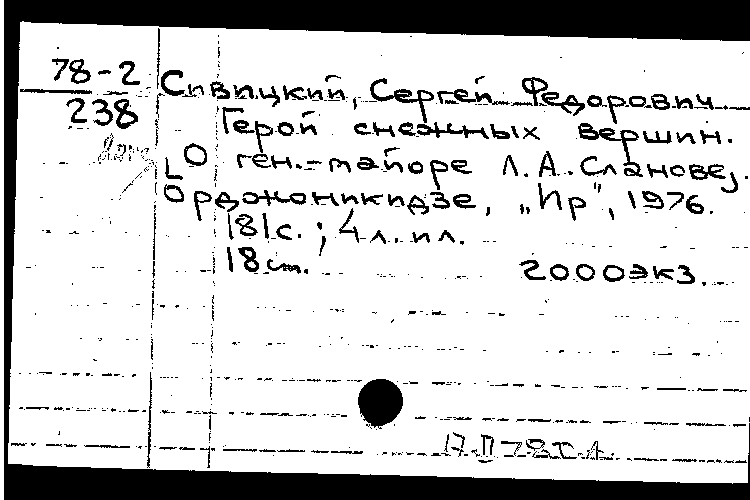 78-2
238
Сивицкий, Сергей Федорович
Герой снежных вершин.
[О ген.-майоре Л.А. Сланове].
Орджоникидзе, „Ир", 1976.
181с.; 4л. ил.
18 см. 2000экз.
17.II-78